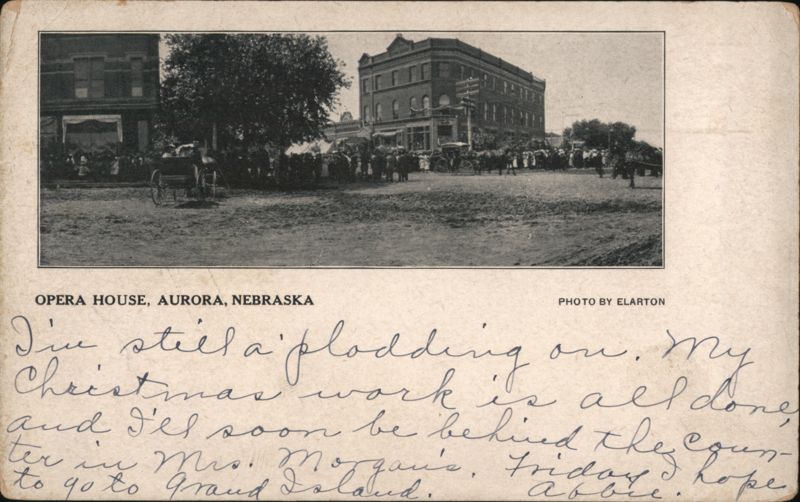 OPERA HOUSE, AURORA, NEBRASKA
PHOTO BY ELARTON
I'm still a' plodding on. My
Christmas work is all done,
and I'll soon be behind the coun-
ter in Mrs. Morgan's. Friday I hope
to go to Grand Island. Abbie.